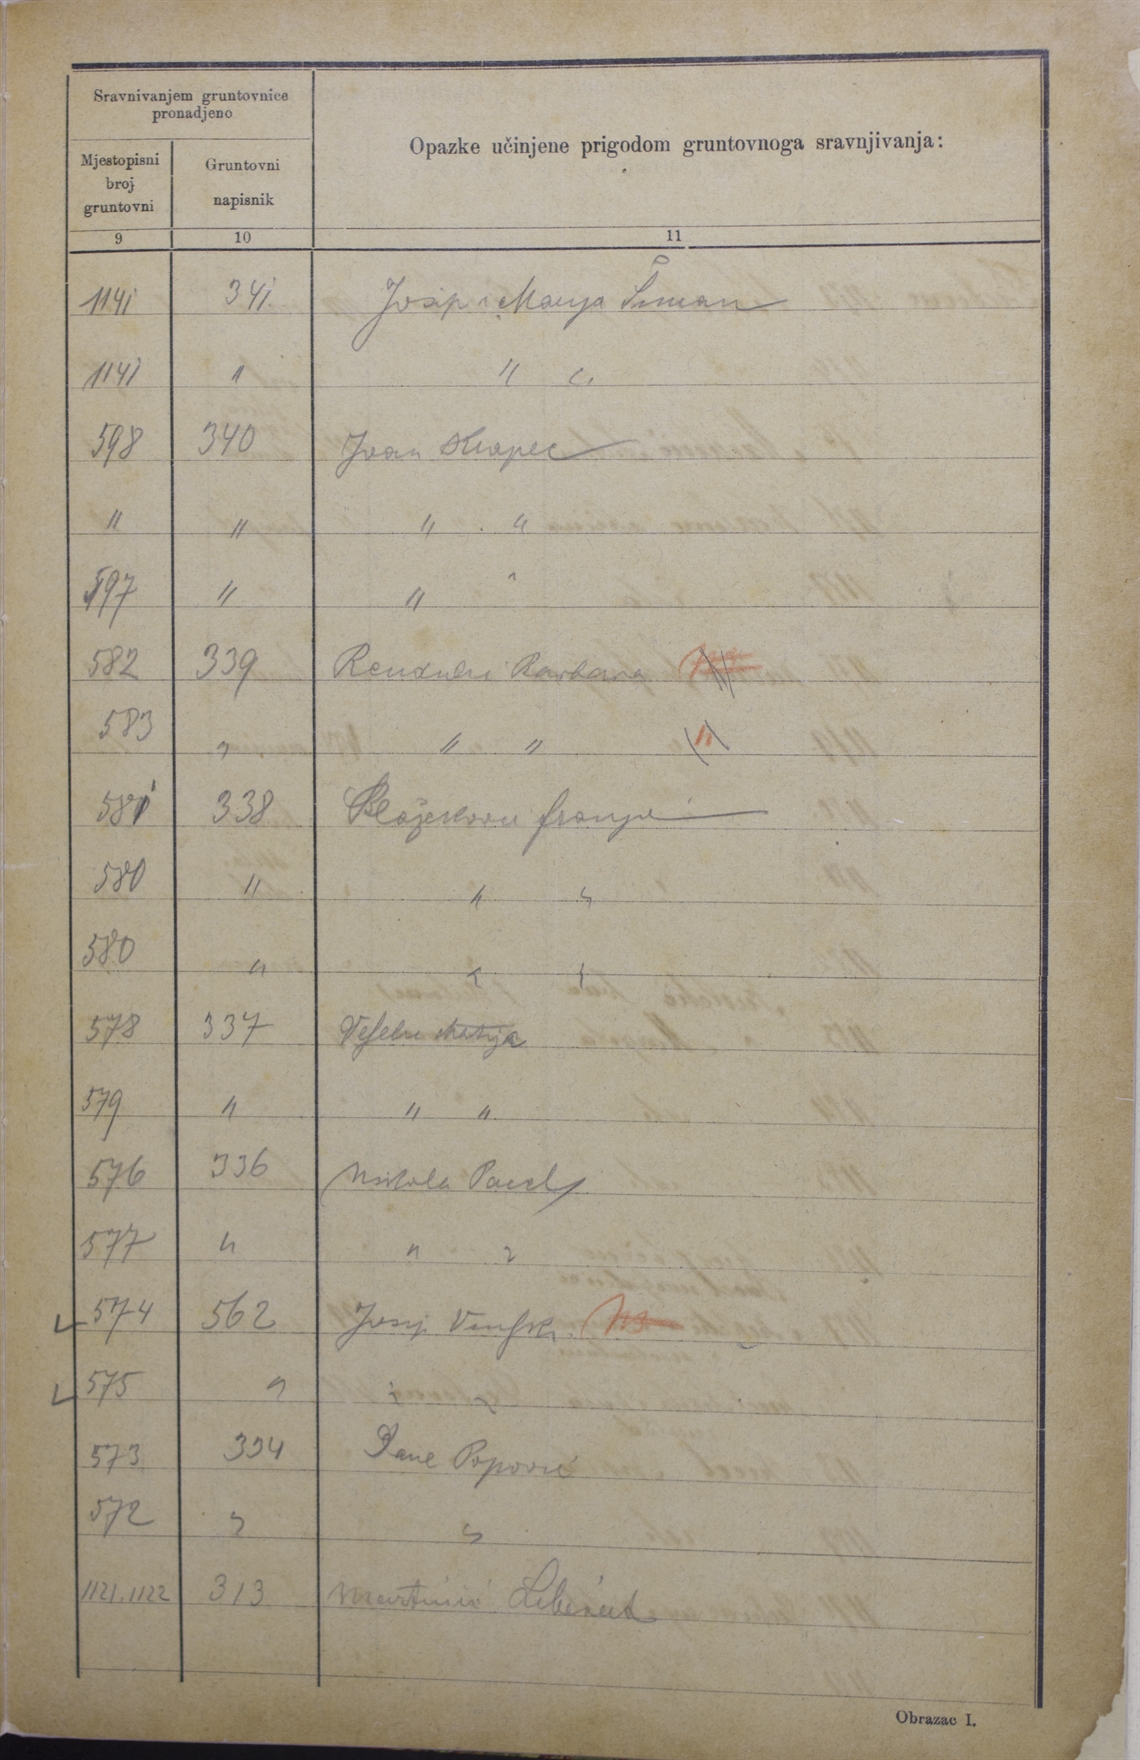 Sravnivanjem gruntovnice
pronadjeno
Opazke učinjene prigodom gruntovnoga sravnjivanja:
Mjestopisni
broj
gruntovni
Gruntovni
napisnik
9 10 11
1141 341 Josip i Marija
1141 " " "
598 340 Ivan
" " " "
597 " "
582 339 Barbara
583 " " " "
581 338 Blažeković Franjo
580 " " "
580 " " "
578 337 Matija
579 " " "
576 336 Nikola
577 " " "
574 562 Josip
575 " " "
573 334 Dane Popović
572 " "
1121.1122 313 Martinić
Obrazac I.